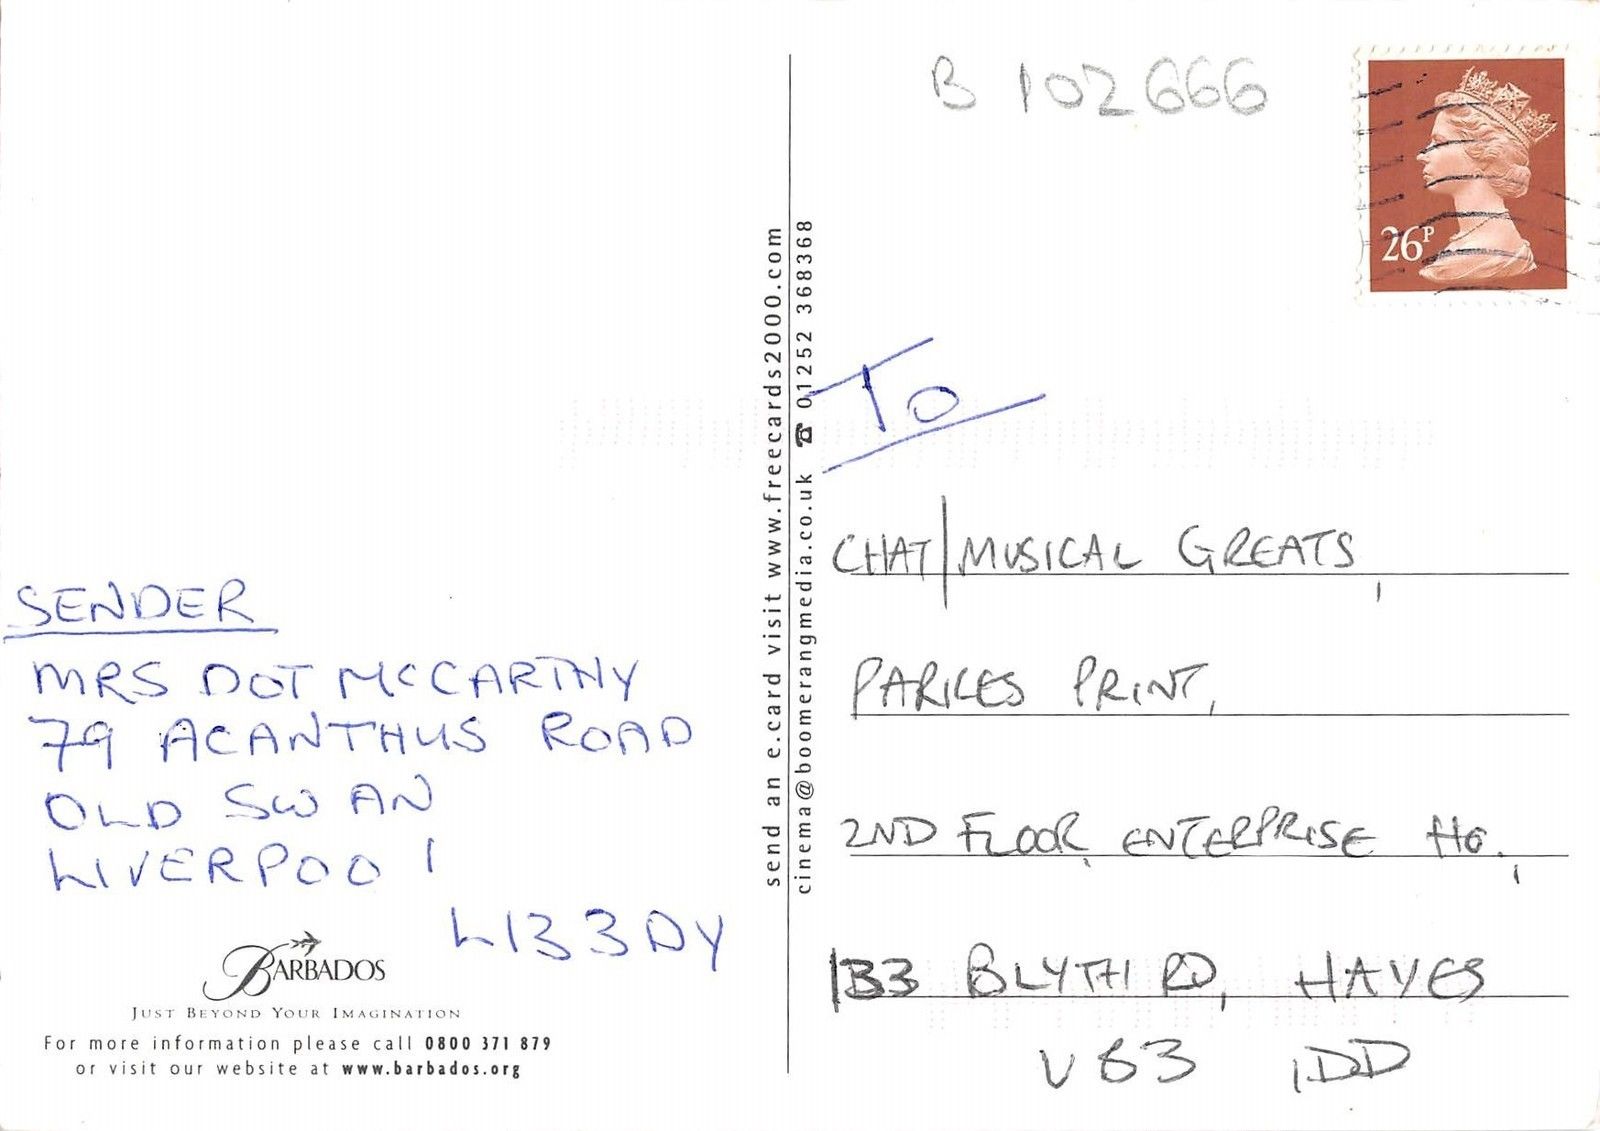 B 102666
26P
send an e.card visit www.freecards2000.com
cinema@boomerangmedia.co.uk ☎ 01252 368368
TO
CHAT/MUSICAL GREATS,
PARKES PRINT,
2ND FLOOR, ENTERPRISE HO.,
133 BLYTH RD, HAYES
UB3 1DD
SENDER
MRS DOT MCCARTHY
79 ACANTHUS ROAD
OLD SWAN
LIVERPOOl
L133DY
BARBADOS
JUST BEYOND YOUR IMAGINATION
For more information please call 0800 371 879
or visit our website at www.barbados.org